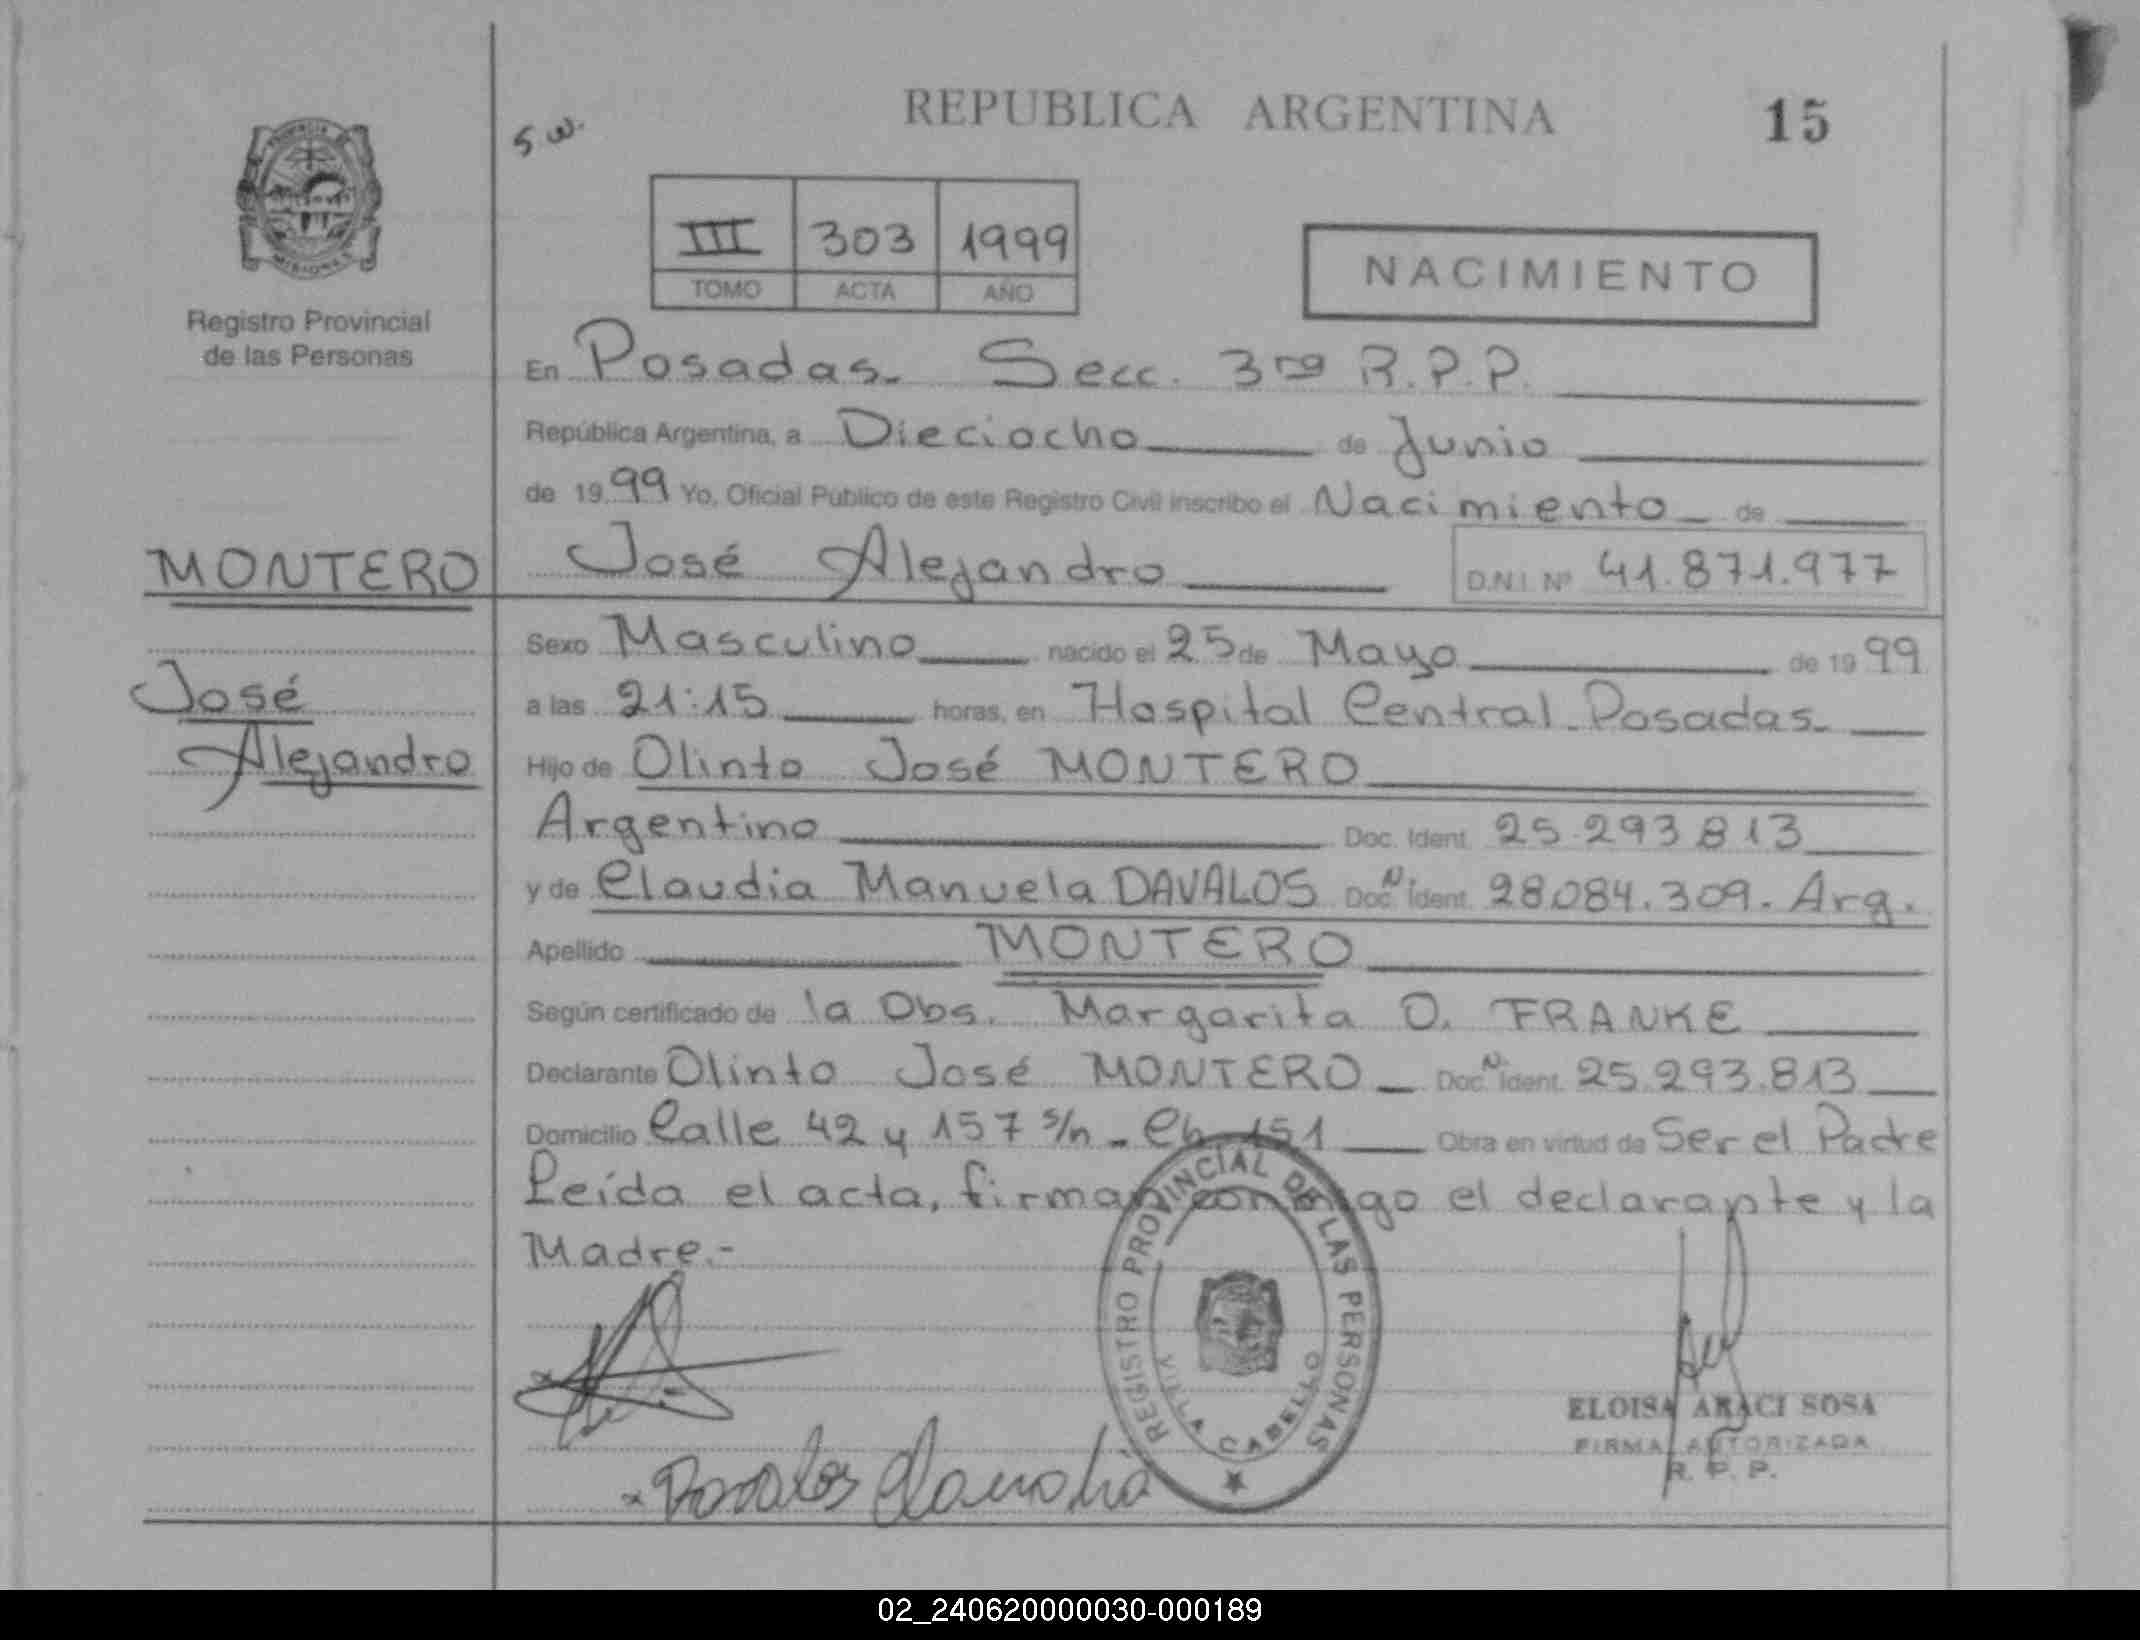 REPUBLICA ARGENTINA
15
s w.
III 303 1999
TOMO ACTA AÑO
NACIMIENTO
Registro Provincial
de las Personas
En Posadas. Secc. 3ra R.P.P.
República Argentina, a Dieciocho de Junio
de 1999 Yo, Oficial Público de este Registro Civil inscribo el Nacimiento de
MONTERO
José Alejandro D.N.I. Nº 41.871.977
Sexo Masculino nacido el 25 de Mayo de 1999
José
a las 21:15 horas, en Hospital Central Posadas.
Alejandro
Hijo de Olinto José MONTERO
Argentino Doc. Ident. 25.293.813
y de Claudia Manuela DAVALOS Doc. N. Ident. 28.084.309. Arg.
Apellido MONTERO
Según certificado de la Obs. Margarita O. FRANKE
Declarante Olinto José MONTERO Doc. N. Ident. 25.293.813
Domicilio Calle 42 y 157 s/n - Ch. 151 Obra en virtud de Ser el Padre
Leída el acta, firman conmigo el declarante y la
Madre.-
REGISTRO PROVINCIAL DE LAS PERSONAS
VILLA CABELLO
ELOISA ARACI SOSA
FIRMA AUTORIZADA
R. P. P.
x Davalos Claudia
02_240620000030-000189